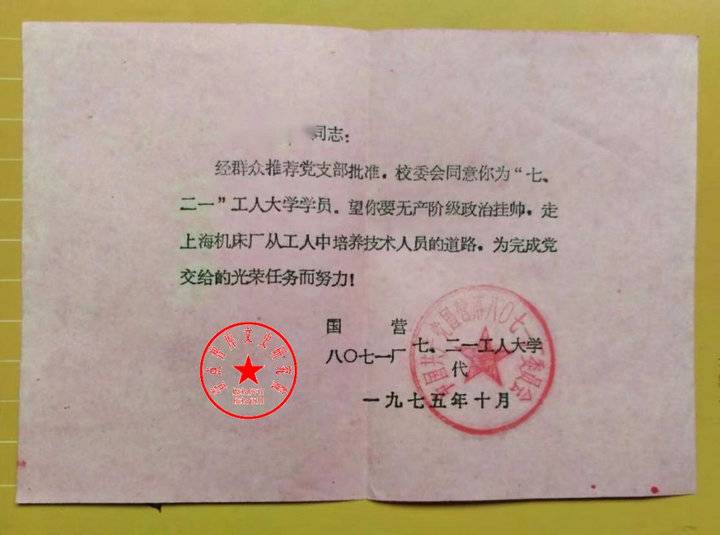 同志:
经群众推荐党支部批准，校委会同意你为“七、
二一”工人大学学员。望你要无产阶级政治挂帅，走
上海机床厂从工人中培养技术人员的道路，为完成党
交给的光荣任务而努力!
国 营
八〇七一厂 七、二一工人大学
代
一九七五年十月
中国共 党国营第八〇七一 委员会